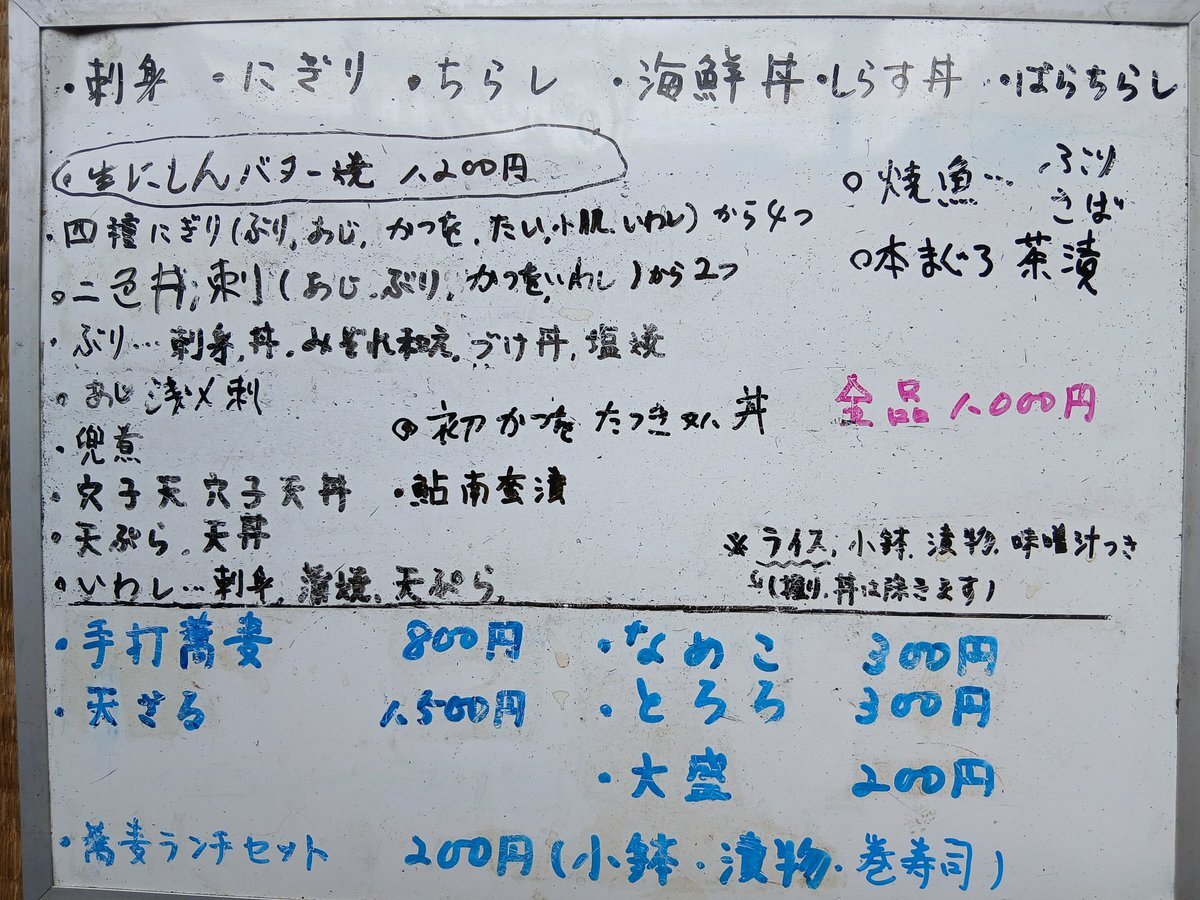 ・刺身 ・にぎり ・ちらし ・海鮮丼・しらす丼 ・ばらちらし
。生にしんバター焼 1,200円
・四種にぎり(ぶり、あじ、かつを、たい、小肌、いわし)から4つ
。二色丼,刺(あじ、ぶり、かつを、いわし)から2つ
・ぶり…刺身、丼、みぞれ和え、づけ丼、塩焼
。あじ 浅〆刺
・兜煮
・穴子天 穴子天丼
・天ぷら、天丼
・いわし…刺身、蒲焼、天ぷら、
。焼魚… ぶり
さば
。本まぐろ 茶漬
全品 1,000円
◎初かつを たつきメバ丼
・鮎南蛮漬
※ライス、小鉢、漬物、味噌汁つき
(握り、丼は除きます)
・手打蕎麦 800円
・天ざる 1,500円
・なめこ 300円
・とろろ 300円
・大盛 200円
・蕎麦ランチセット 200円(小鉢・漬物・巻寿司)